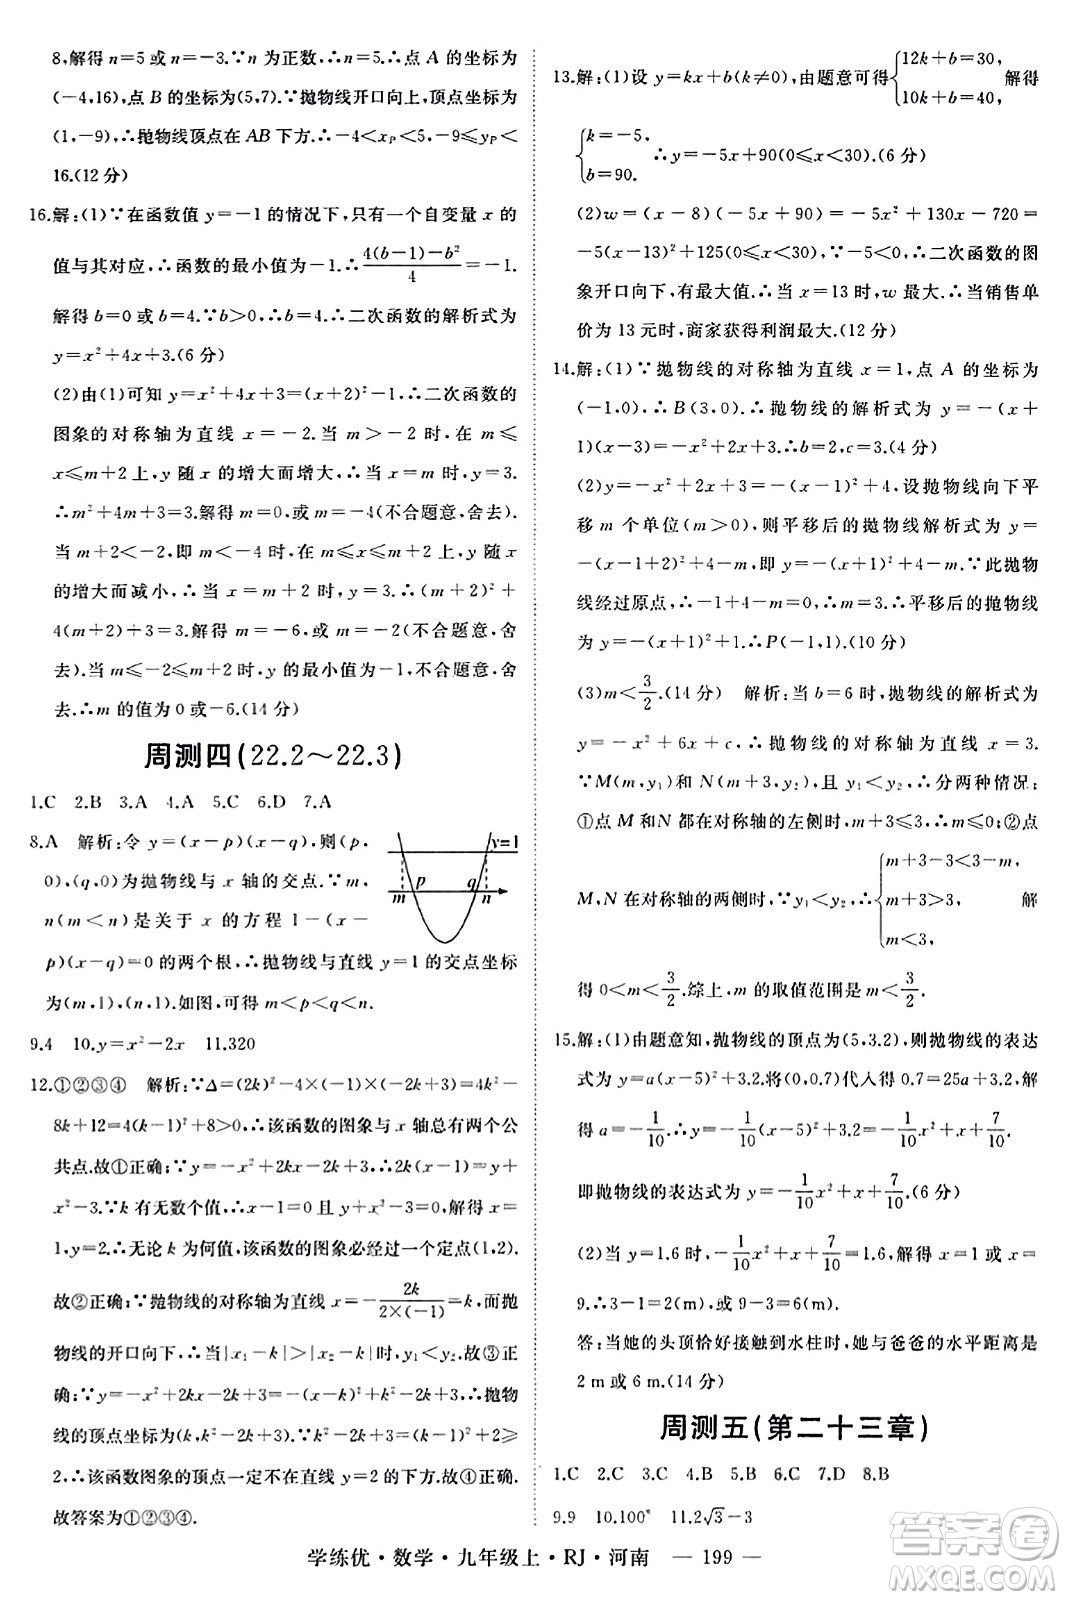 8,解得n=5或n=-3.∵n为正数,∴n=5.∴点A的坐标为
(-4,16),点B的坐标为(5,7).∵抛物线开口向上,顶点坐标为
(1,-9),∴抛物线顶点在AB下方.∴-4<xP<5,-9≤yP≤
16.(12分)
16.解:(1)∵在函数值y=-1的情况下,只有一个自变量x的
值与其对应,∴函数的最小值为-1.∴4(b-1)-b²/4=-1.
解得b=0或b=4.∵b>0,∴b=4.∴二次函数的解析式为
y=x²+4x+3.(6分)
(2)由(1)可知y=x²+4x+3=(x+2)²-1,∴二次函数的
图象的对称轴为直线x=-2.当m>-2时,在m≤
x≤m+2上,y随x的增大而增大,∴当x=m时,y=3.
∴m²+4m+3=3.解得m=0或m=-4(不合题意,舍去);
当m+2<-2,即m<-4时,在m≤x≤m+2上,y随x
的增大而减小,∴当x=m+2时,y=3.∴(m+2)²+
4(m+2)+3=3.解得m=-6或m=-2(不合题意,舍
去).当m≤-2≤m+2时,y的最小值为-1,不合题意,舍
去.∴m的值为0或-6.(14分)
周测四(22.2～22.3)
1.C 2.B 3.A 4.A 5.C 6.D 7.A
8.A 解析:令y=(x-p)(x-q),则(p,
0),(q,0)为抛物线与x轴的交点.∵m,
n(m<n)是关于x的方程1-(x-
p)(x-q)=0的两个根,∴抛物线与直线y=1的交点坐标
为(m,1),(n,1).如图,可得m<p<q<n.
y=1
m p q n
9.4 10.y=x²-2x 11.320
12.①②③④ 解析:∵Δ=(2k)²-4×(-1)×(-2k+3)=4k²-
8k+12=4(k-1)²+8>0,∴该函数的图象与x轴总有两个公
共点.故①正确;∵y=-x²+2kx-2k+3,∴(2x-2)k+3-y-
x²=0.∵k有无数个值,∴x-1=0,3-y-x²=0.解得x=
1,y=2.∴无论k为何值,该函数的图象必经过一个定点(1,2).
故②正确;∵抛物线的对称轴为直线x=-2k/2×(-1)=k,而抛
物线的开口向下,∴当|x₁-k|>|x₂-k|时,y₁<y₂.故③正
确;∵y=-x²+2kx-2k+3=-(x-k)²+k²-2k+3,∴抛物
线的顶点坐标为(k,k²-2k+3).∵k²-2k+3=(k-1)²+2≥
2,∴该函数图象的顶点一定不在直线y=2的下方.故④正确.
故答案为①②③④.
13.解:(1)设y=kx+b(k≠0),由题意可得{12k+b=30,10k+b=40,解得
{k=-5,b=90.∴y=-5x+90(0≤x<30).(6分)
(2)w=(x-8)(-5x+90)=-5x²+130x-720=
-5(x-13)²+125(0≤x<30).∵-5<0,∴二次函数的图
象开口向下,有最大值.∴当x=13时,w最大.∴当销售单
价为13元时,商家获得利润最大.(12分)
14.解:(1)∵抛物线的对称轴为直线x=1,点A的坐标为
(-1,0),∴B(3,0).∴抛物线的解析式为y=-(x+
1)(x-3)=-x²+2x+3.∴b=2,c=3.(4分)
(2)y=-x²+2x+3=-(x-1)²+4,设抛物线向下平
移m个单位(m>0),则平移后的抛物线解析式为y=
-(x-1)²+4-m,即y=-(x-1)²+4-m.∵此抛物
线经过原点,∴-1+4-m=0.∴m=3.∴平移后的抛物线
为y=-(x-1)²+1.∴P(-1,1).(10分)
(3)m<3/2.(14分) 解析:当b=6时,抛物线的解析式为
y=-x²+6x+c,∴抛物线的对称轴为直线x=3.
∵M(m,y₁)和N(m+3,y₂),y₁<y₂,∴分两种情况:
①点M和N都在对称轴的左侧时,m+3≤3.∴m≤0;②点
M,N在对称轴的两侧时,∵y₁<y₂,∴{m+3-3<3-m,m+3>3,m<3,解
得0<m<3/2.综上,m的取值范围是m<3/2.
15.解:(1)由题意知,抛物线的顶点为(5,3.2),则抛物线的表达
式为y=a(x-5)²+3.2.将(0,0.7)代入得0.7=25a+3.2,解
得a=-1/10.∴y=-1/10(x-5)²+3.2=-1/10x²+x+7/10,
即抛物线的表达式为y=-1/10x²+x+7/10.(6分)
(2)当y=1.6时,-1/10x²+x+7/10=1.6,解得x=1或x=
9.∴3-1=2(m),或9-3=6(m).
答:当她的头顶恰好接触到水柱时,她与爸爸的水平距离是
2 m或6 m.(14分)
周测五(第二十三章)
1.C 2.C 3.C 4.B 5.B 6.C 7.D 8.B
9.9 10.100° 11.2√3-3
学练优·数学·九年级上·RJ·河南 — 199 —
答案圈
MXQE.COM